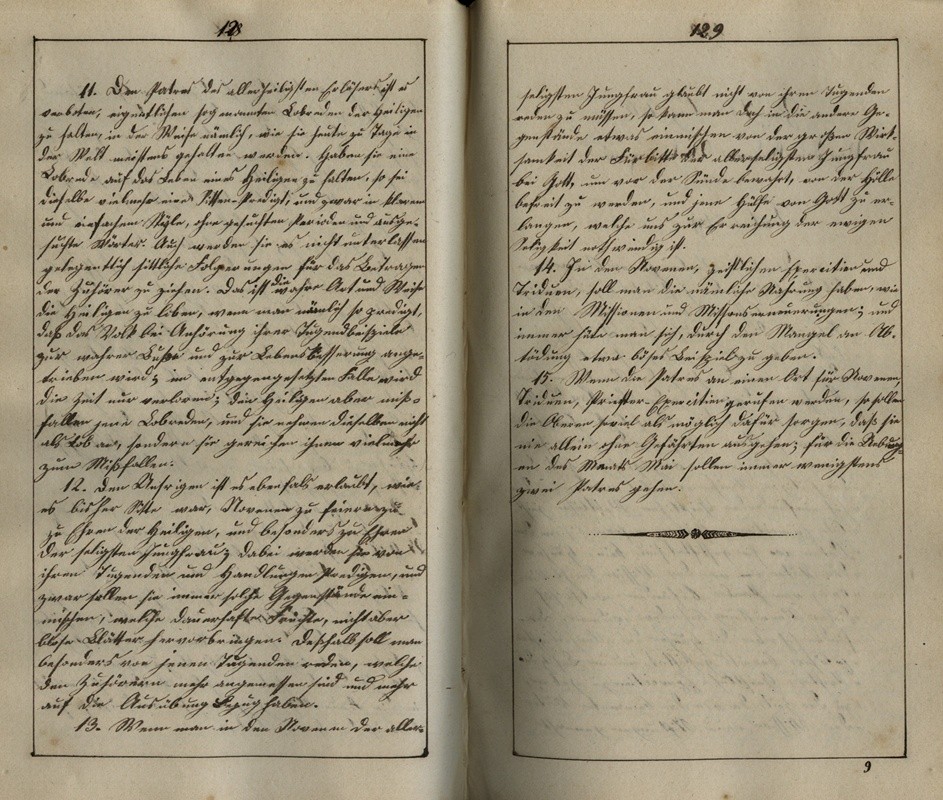 128
11. Den Patres des allerheiligsten Erlösers ist es
verboten, eigentlichen sogenannten Lobreden der Heiligen
zu halten, in der Weise nämlich, wie sie heute zu Tage in
der Welt meistens gehalten werden. Haben sie eine
Lobrede auf das Leben eines Heiligen zu halten, so sei
dieselbe vielmehr eine Sitten-Predigt, und zwar in klarem
und einfachem Style, ohne gesuchten Perioden und ausge-
suchte Wörter. Auch werden sie es nicht unterlassen
gelegentlich sittliche Folgerungen für das Betragen
der Zuhörer zu ziehen. Das ist die wahre Art und Weise
die Heiligen zu loben, wenn man nämlich so predigt,
daß das Volk bei Anhörung ihrer Tugendbeispiele
zur wahrer Buße und zur Lebensbesserung ange-
trieben wird; im entgegengesetzten Falle wird
die Zeit nur verloren; die Heiligen aber miß-
fallen jene Lobreden, und sie nehmen dieselben nicht
als Lob an, sondern sie gereichen ihnen vielmehr
zum Mißfallen.
12. Den Unsrigen ist es ebenfals erlaubt, wie
es bisher Sitte war, Novenen zu feiern
zu Ehren der Heiligen, und besonders zu Ehren
der seligsten Jungfrau; dabei werden sie von
ihren Tugenden und Handlungen predigen, und
zwar sollen sie immer solche Gegenstände ein-
mischen, welche dauerhafte Früchte, nicht aber
bloße Blätter hervorbringen. Deßhalb soll man
besonders von jenen Tugenden reden, welche
den Zuhörern mehr angemessen sind und mehr
auf die Ausübung Bezug haben.
13. Wenn man in den Novenen der aller-
129
seligsten Jungfrau glaubt nicht von ihren Tugenden
reden zu müssen, so kann man doch in die andere Ge-
genstände etwas einmischen von der großen Wirk-
samkeit der Fürbitte der allerseligsten Jungfrau
bei Gott, um vor der Sünde bewahrt, von der Hölle
befreit zu werden, und jene Hülfe von Gott zu er-
langen, welche uns zur Erreichung der ewigen
Seligkeit nothwendig ist.
14. In den Novenen, geistlichen Exercitien und
Triduen, soll man die nämliche Nahrung haben, wie
in den Missionen und Missionserneuerungen; und
immer hüte man sich, durch den Mangel an Ab-
tödung etwa böses Beispiel zu geben.
15. Wenn die Patres an einen Ort für Novenen,
Triduen, Priester-Exercitien gerufen werden, so sollen
die Oberen soviel als möglich dafür sorgen, daß sie
nie allein ohne Gefährten ausgehen; für die Uebung-
en des Monats Mai sollen immer wenigstens
zwei Patres gehen.
9